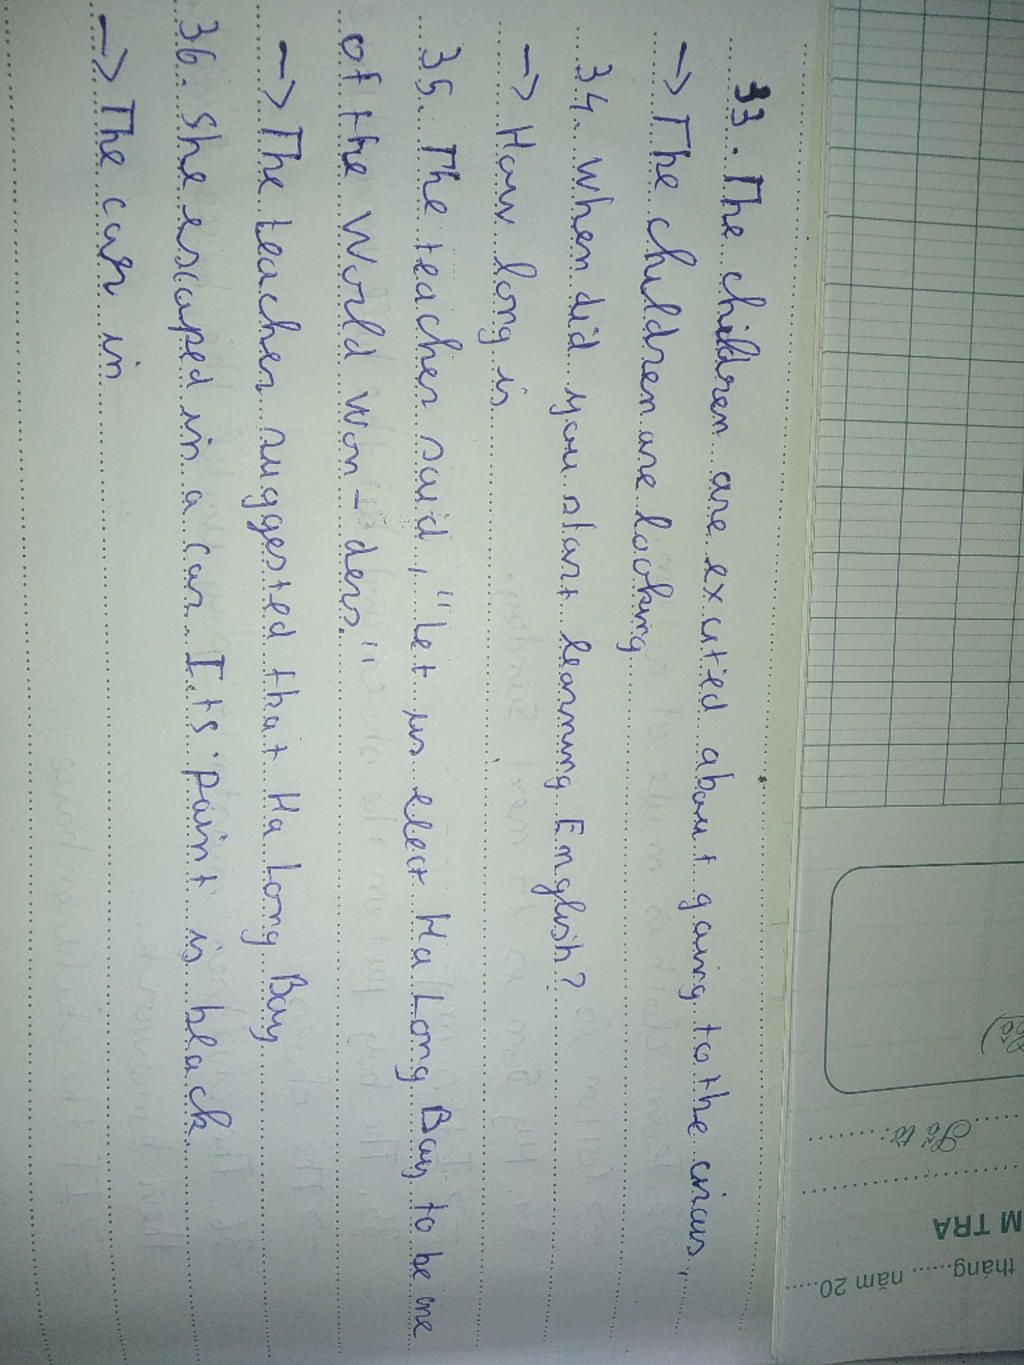 33. The children are excited about going to the circus,
→ The children are looking
34. When did you start learning English?
→ How long is
35. The teacher said, "Let us elect Ha Long Bay to be one
of the world won-ders."
→ The teacher suggested that Ha Long Bay
36. She escaped in a car. Its paint is black.
→ The car in
Số tờ:
M TRA
tháng...... năm 20.....